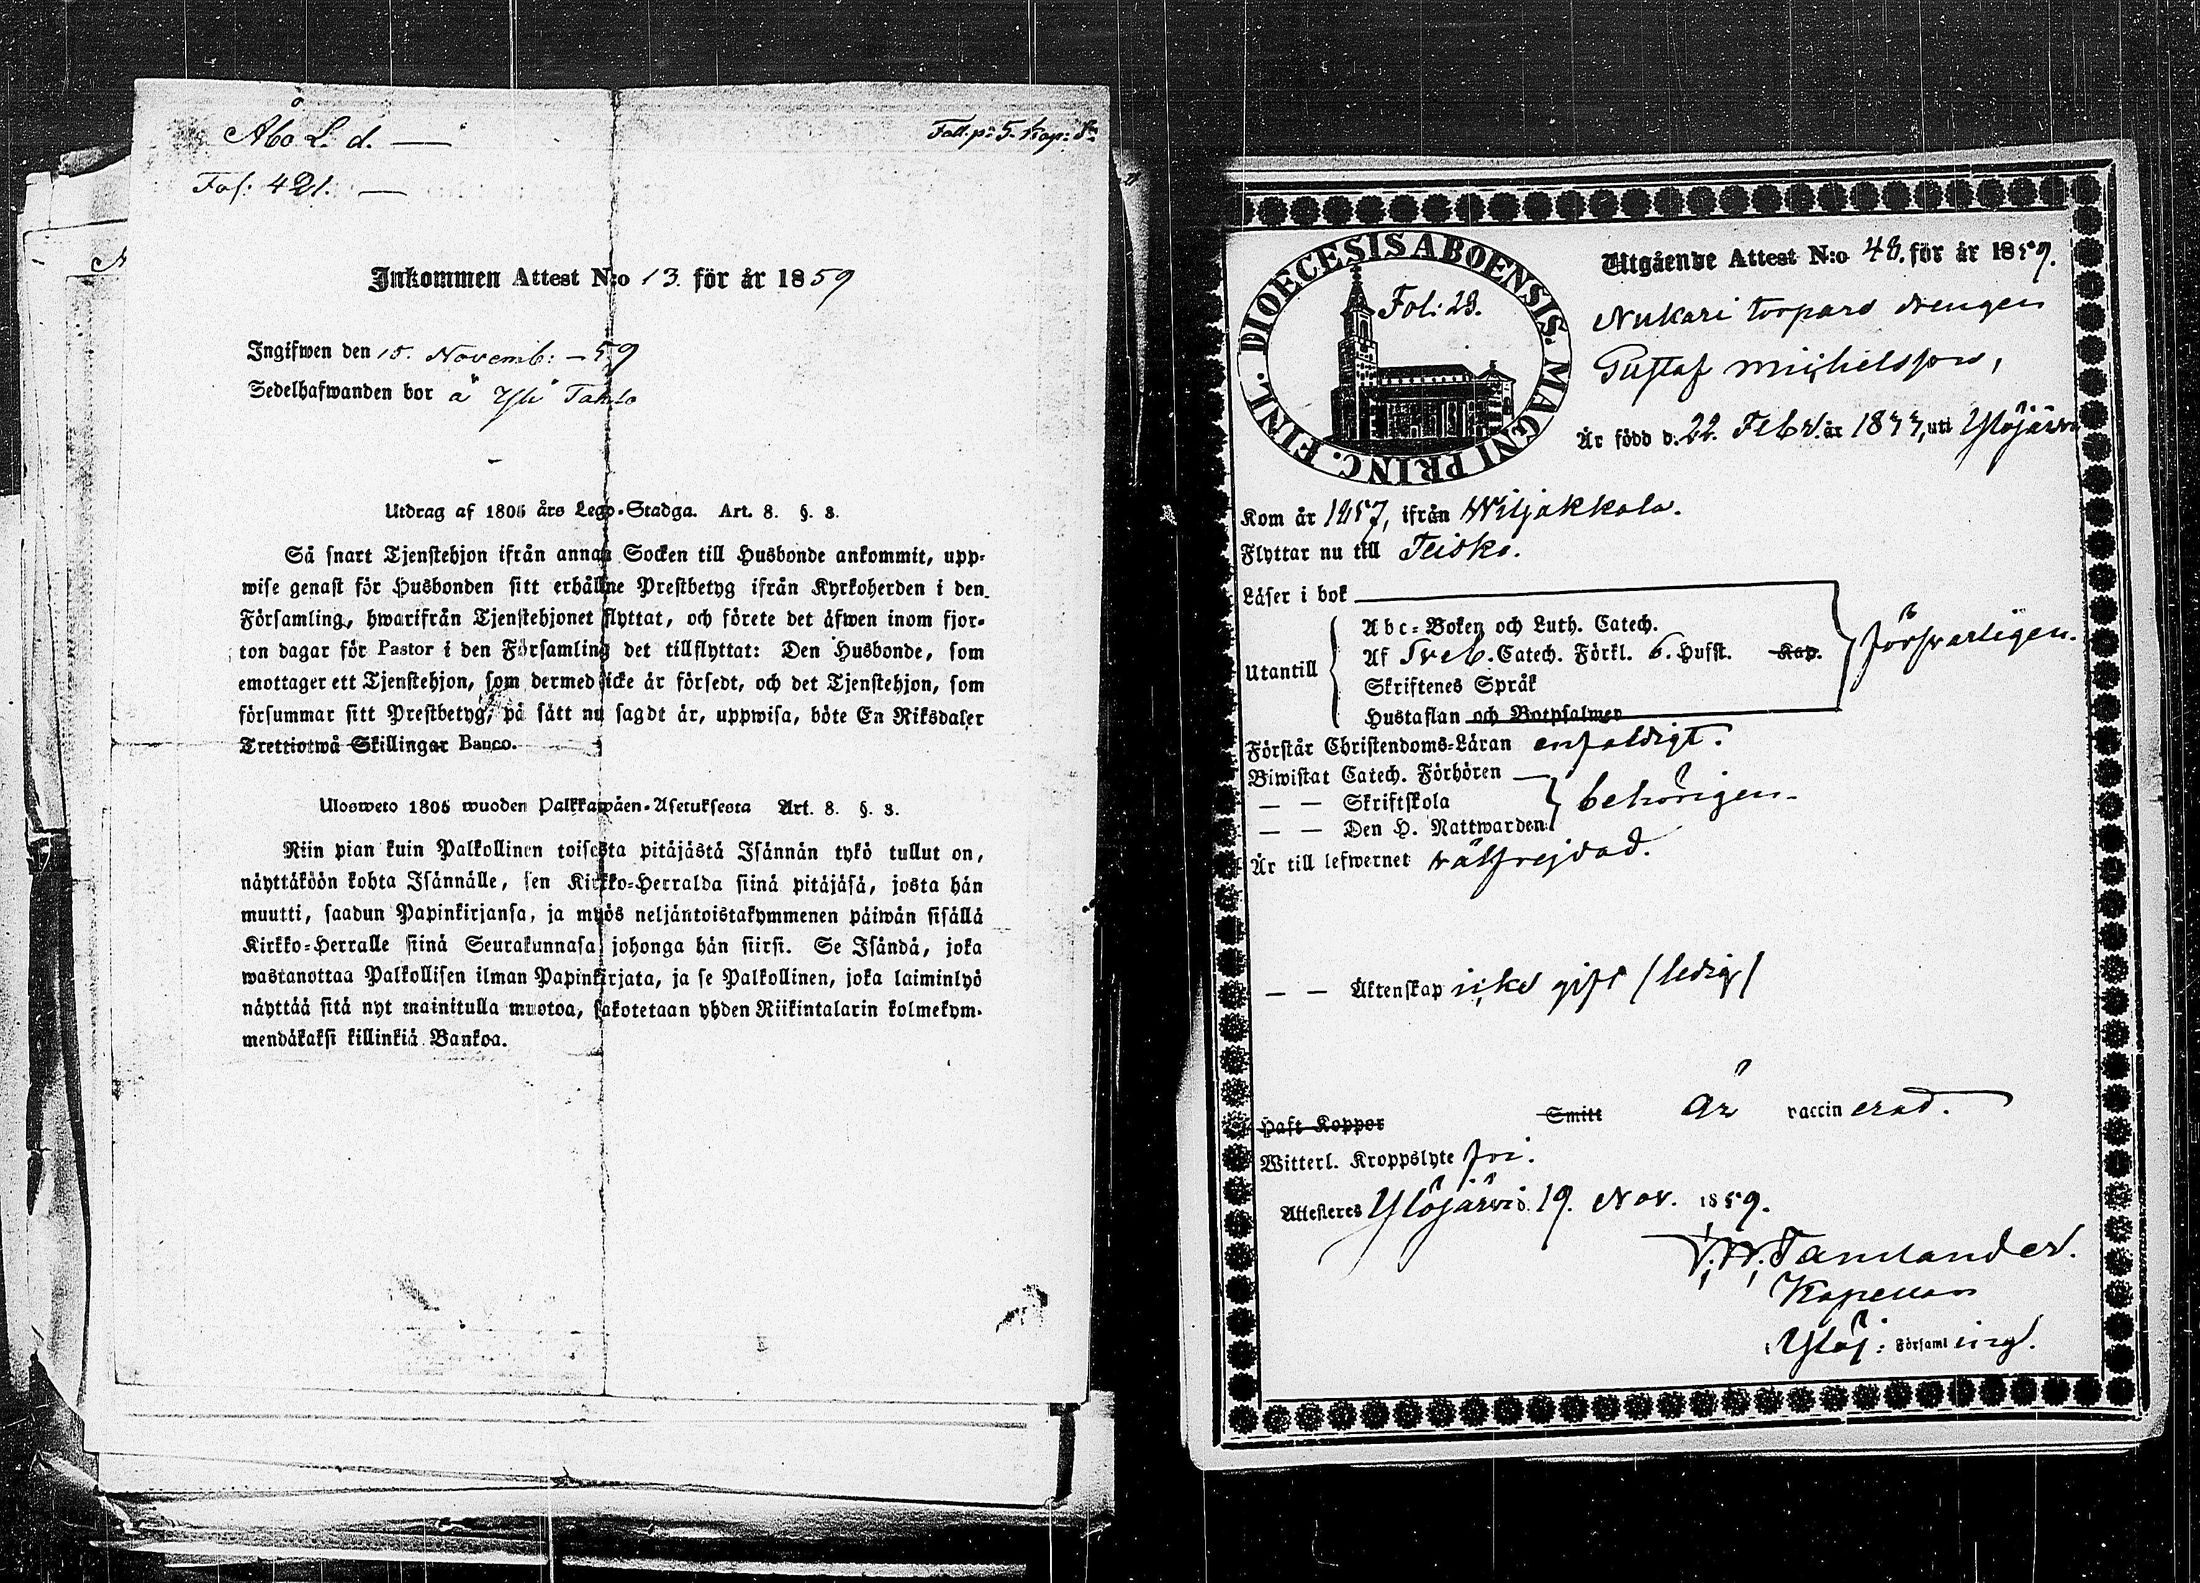 Åbo L. d. —
Fol: 421. —
Inkommen Attest N:o 13. för år 1859
Ingifwen den 15. Novemb: - 59
Sedelhafwanden bor å Yli
Utdrag af 1805 års Lego-Stadga. Art. 8. §. 3.
Så snart Tjenstehjon ifrån annan Socken till Husbonde ankommit, upp-
wise genast för Husbonden sitt erhållne Prestbetyg ifrån Kyrkoherden i den
Församling, hwarifrån Tjenstehjonet flyttat, och förete det äfwen inom fjor-
ton dagar för Pastor i den Församling det tillflyttat: Den Husbonde, som
emottager ett Tjenstehjon, som dermed icke är försedt, och det Tjenstehjon, som
försummar sitt Prestbetyg, på sätt nu sagdt är, uppwisa, böte En Riksdaler
Trettiotwå Skillingar Banco.
Ulosweto 1805 wuoden Palkkawäen-Asetuksesta Art. 8. §. 3.
Niin pian kuin Palkollinen toisesta pitäjästä Isännän tykö tullut on,
näyttäköön kohta Isännälle, sen Kirkko-Herralda siinä pitäjäsä, josta hän
muutti, saadun Papinkirjansa, ja myös neljäntoistakymmenen päiwän sisällä
Kirkko-Herralle siinä Seurakunnasa johonga hän siirsi. Se Isändä, joka
wastanottaa Palkollisen ilman Papinkirjata, ja se Palkollinen, joka laiminlyö
näyttää sitä nyt mainitulla muotoa, sakotetaan yhden Riikintalarin kolmekym-
mendäkaksi killinkiä Bankoa.
DIOECESIS ABOENSIS. MAGNI PRINC. FINL.
Fol: 23.
Utgående Attest N:o 48. för år 1859.
Nukari torpare drengen
Gustaf Michelsson,
Är född d. 22. Febr. år 1833, uti Ylöjärvi
Kom år 1857, ifrån Wiljakkala.
Flyttar nu till Teisko.
Läser i bok
Utantill
Abc-Boken och Luth. Catech.
Af Sveb. Catech. Förkl. 6. Hufst. Kap.
Skriftenes Språk
Hustaflan och Botpsalmer
försvarligen.
Förstår Christendoms-Läran enfaldigt.
Biwistat Catech. Förhören
— — Skriftskola
— — Den H. Nattwarden
behörigen.
Är till lefwernet välfrejdad.
— — Äktenskap icke gift /ledig/
Haft Koppor Smitt är vaccinerad.
Witterl. Kroppslyte fri.
Attesteres Ylöjärvi d. 19. Nov. 1859.
Tamlander.
Kapellan
i Ylöj: Församling.